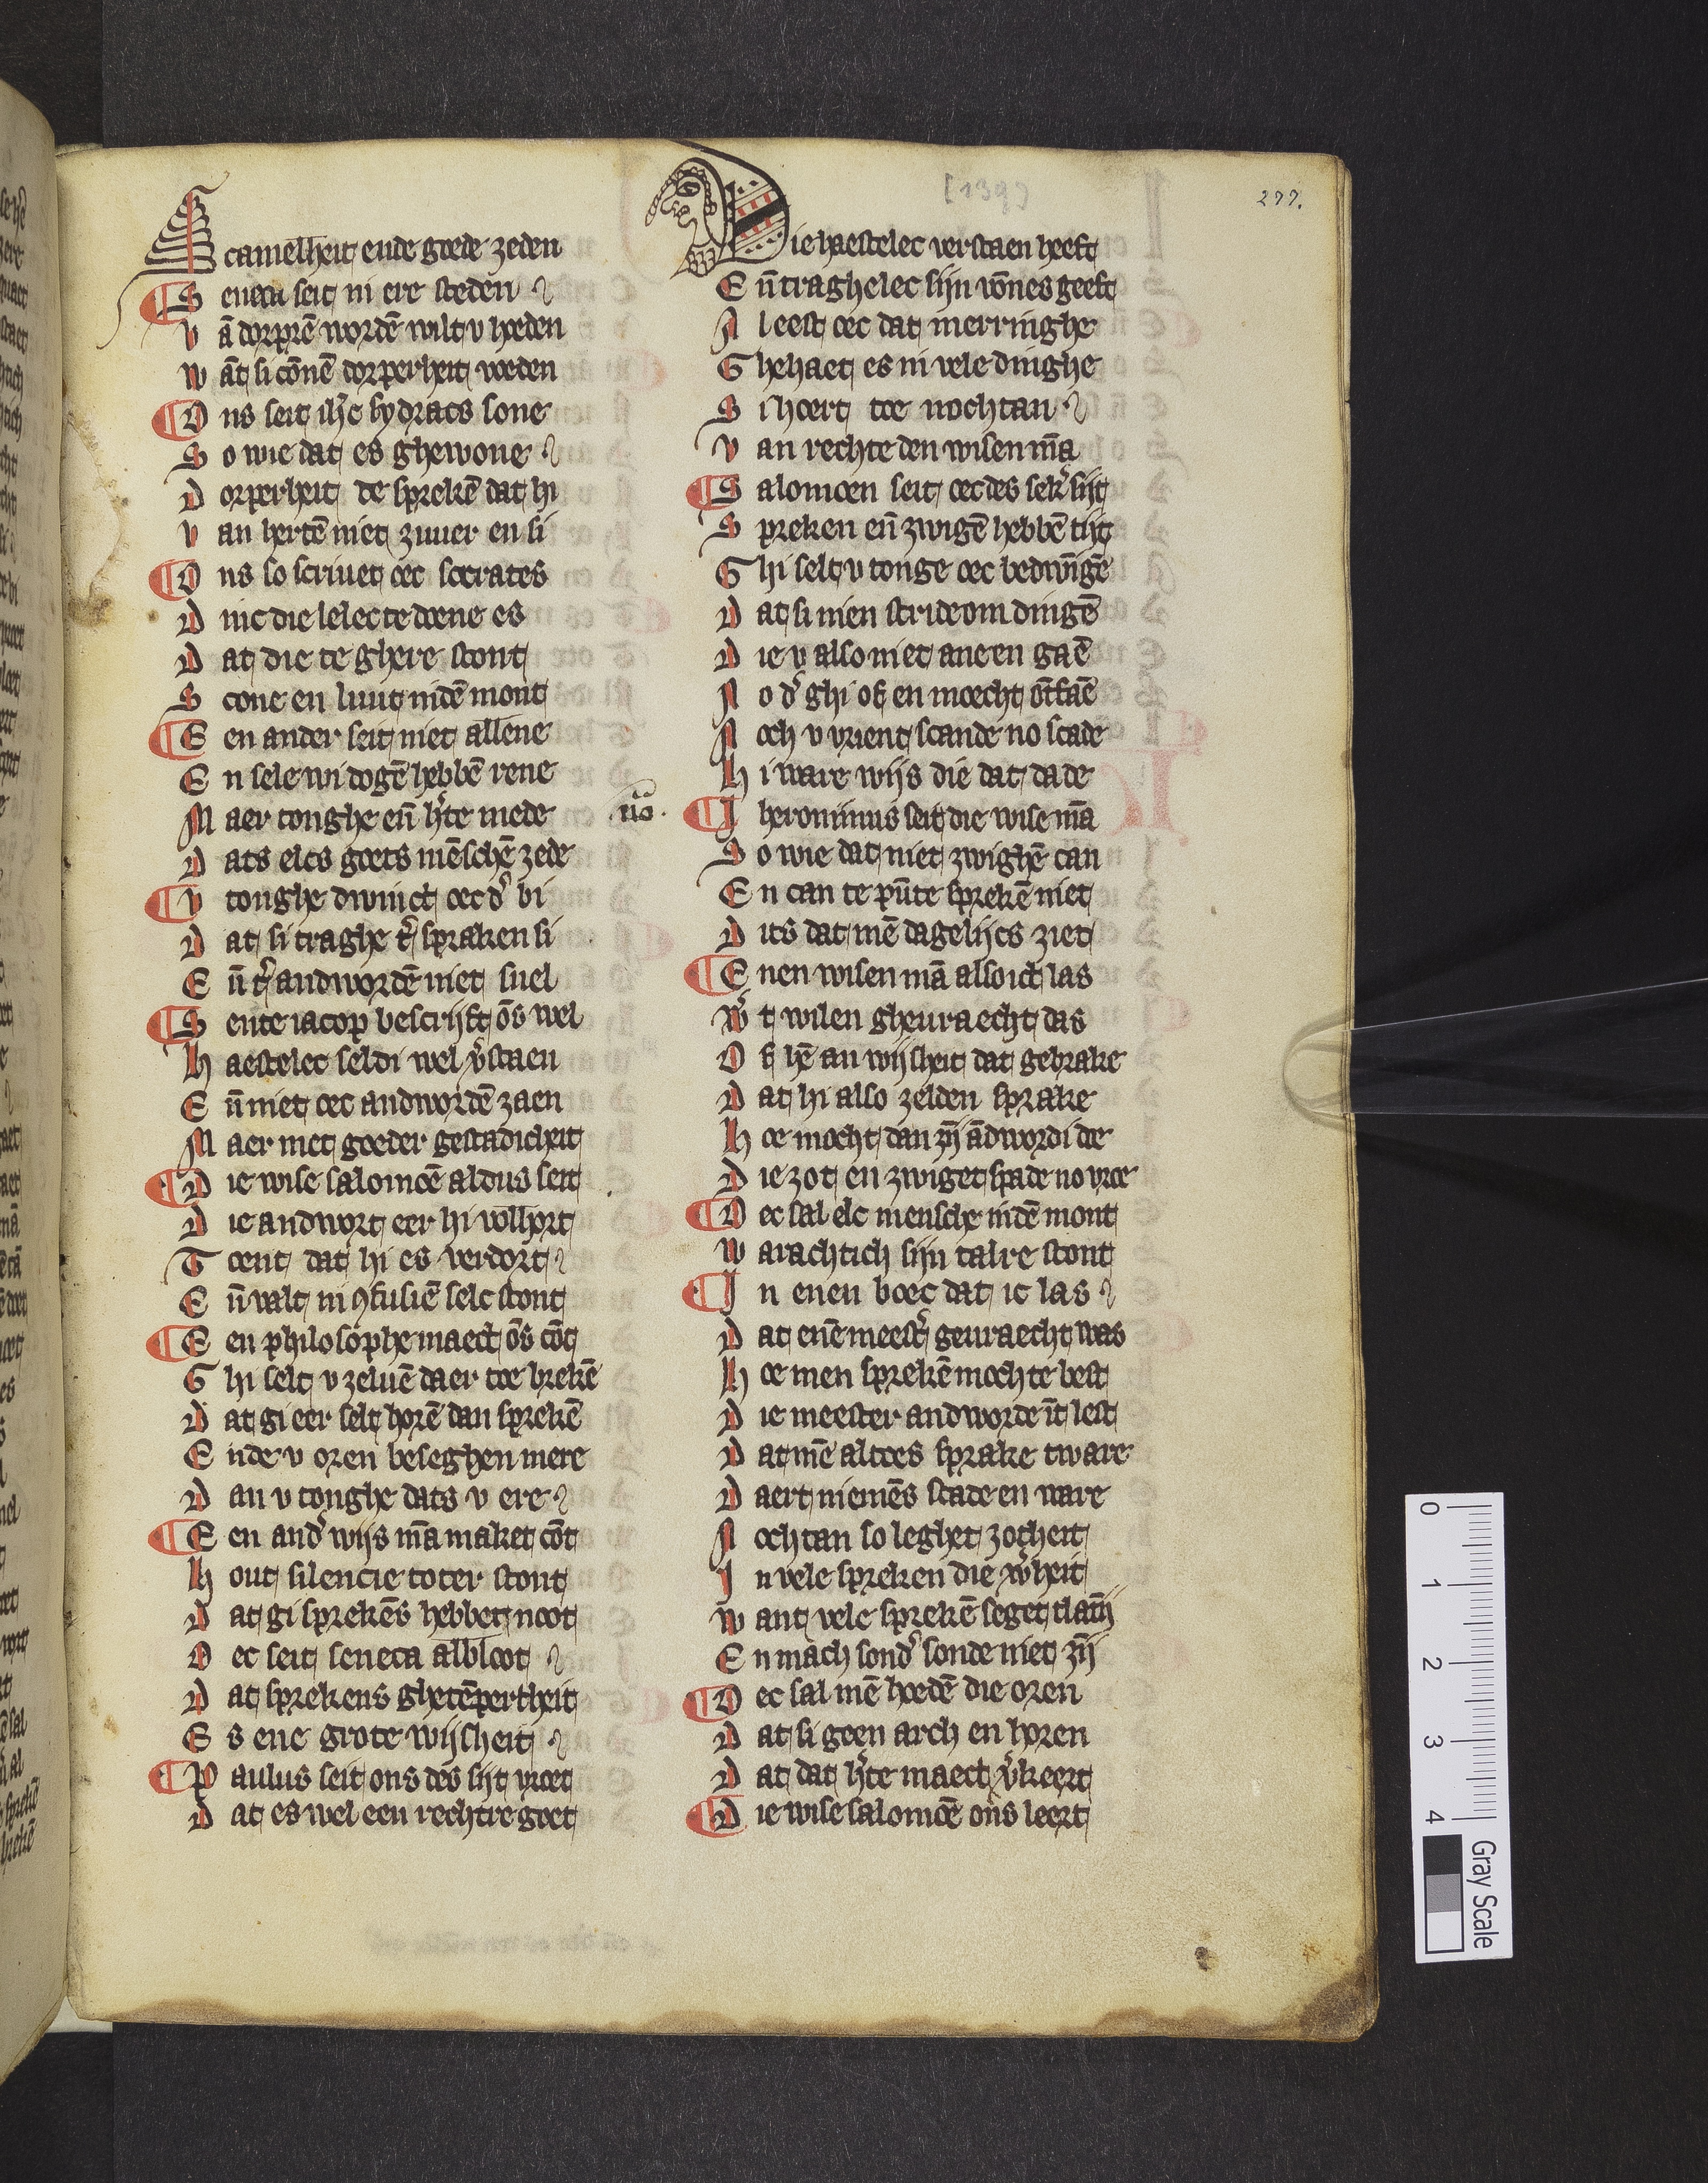 [139)
277.
A cameлheit ende goede zeden
S eneca seit in ere steden
V ā dorpꝛē wordē wilt v hoeden
W āt si cōnē dorperheit voeden
O ns seit ih̄c sydracs sone
S o wie dat es ghewone
D orperheit te sprekē dat hi
V an hertē niet zuuer en si
O ns so scriuet oec socrates
D inc die lelec te doene es
D at die te ghere stont
S cone en luut indē mont
E en ander seit niet allene
E n sele wi dogē hebbē rene
M aer tonghe eñ h̕te mede
D ats elcs goets mēschē zede
V tonghe dwinct oec d̕ bi
D at si traghe t̕ spraken si
E ñ t̕ andwordē niet snel
S ente iacop bescrijft ōs wel
H aestelec seldi wel v̕staen
E ñ niet oec andwordē zaen
M aer met goeder gestadicheit
D ie wise salomoē aldus seit
D ie andwort eer hi vollhort
T oent dat hi es verdort
E ñ valt in ꝯfusiē selc stont
E en philosophe maect ōs cōt
G hi selt v zeluē daer toe brekē
D at gi eer selt horē dan sprekē
E nde v oren beseghen mere
D an v tonghe dats v ere
E en and̕ wijs mā maket cōt
H out silencie toter stont
D at gi sprekēs hebbet noot
O ec seit seneca al bloot
D at sprekens ghetēpertheit
E s ene grote wijsheit
P aulus seit ons des sijt vroet
D at es wel een rechtre goet
D ie haestelec verstaen heeft
E ñ traghelec sijn vōnes geeft
A l eest oec dat merringhe
G hehaet es in vele dinghe
S i hoert toe nochtan
V an rechte den wisen mā
S alomoen seit oec des sek̕ sijt
S preken eñ zwigē hebbē tijt
G hi selt v tonge oec bedwīgē
D at si nien stride om dingē
D ie v also niet ane en gaē
N o d̕ ghi of en moecht ōtfaē
N och v vrient scande no scade
H i ware wijs die dat dade
nō.
I heronimus seit die wise mā
S o wie dat niet zwighē can
E n can te pūte sprekē niet
D its dat mē dagelijcs ziet
E nen wisen mā also ict las
W̕ t wilen gheuraecht das
O f hē an wijsheit dat gebrake
D at hi also zelden sprake
H oe mocht dan zij ādwordi de
D ie zot en zwiget spade no vroe
O ec sal elc mensche indē mont
W arachtich sijn talre stont
I n enen boec dat ic las
D at enē meest̕ geuraecht was
H oe men sprekē mochte best
D ie meester andworde īt lest
D at mē altoes sprake tware
D aert niemēs scade en ware
N ochtan so leghet zotheit
I n vele spreken die w̕heit
W ant vele sprekē seget tlatij
E n mach sond̕ sonde niet zij
O ec sal mē hoedē die oren
D at si geen arch en horen
D at dat h̕te maect v̕keert
D ie wise salomoē ons leert